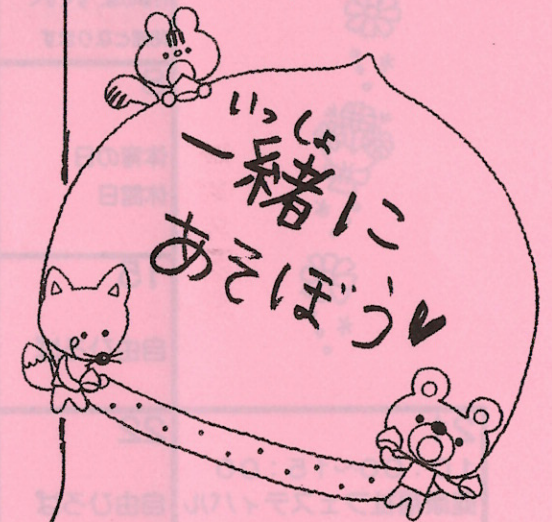 いっしょ
一緒に
あそぼう♥